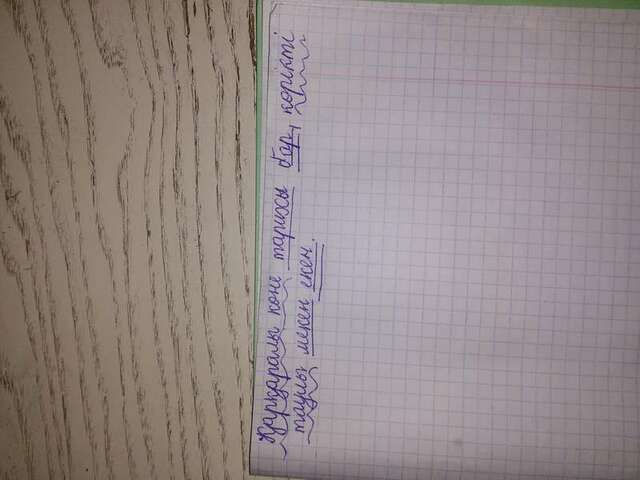 Қарқаралы көне тарихы бар, көрікті
таулы мекен екен.